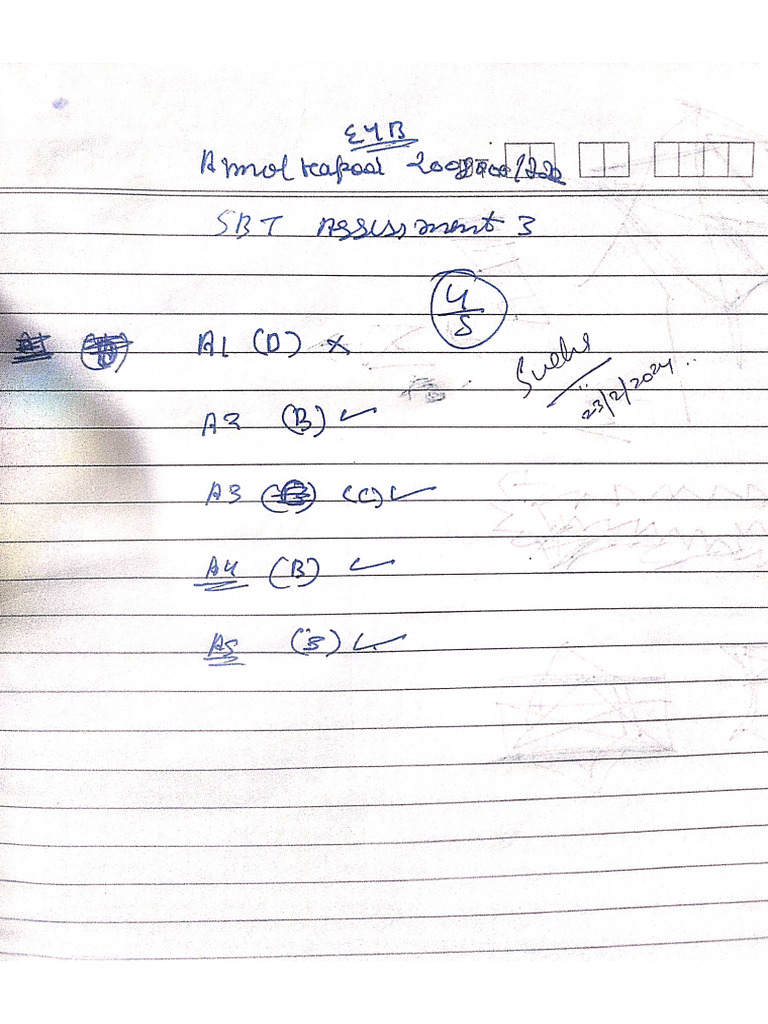 E4B
Anmol Kapoor
SBT Assessment 3
4/5
A1 (D) ×
23/2/2024..
A2 (B) ✓
A3 (C) ✓
A4 (B) ✓
A5 (B) ✓